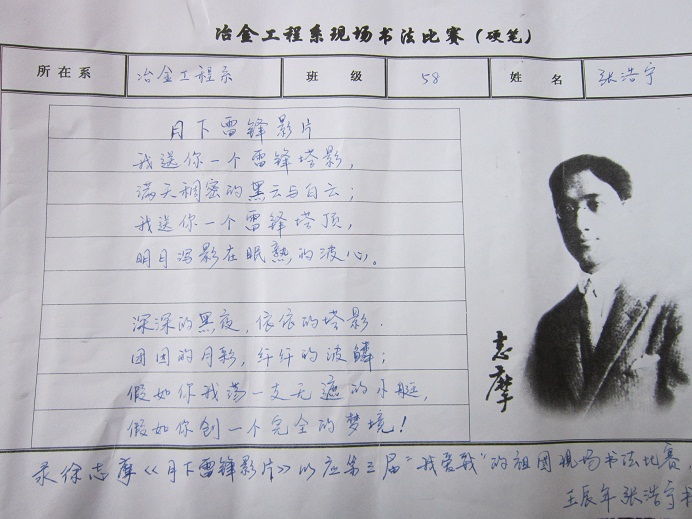 冶金工程系现场书法比赛（硬笔）
所在系 冶金工程系 班 级 58 姓 名 张浩宇
月下雷锋影片
我送你一个雷锋塔影，
满天稠密的黑云与白云；
我送你一个雷锋塔顶，
明月泻影在眠熟的波心。
深深的黑夜，依依的塔影．
团团的月彩，纤纤的波鳞；
假如你我荡一支无遮的小艇，
假如你创一个完全的梦境！
志摩
录徐志摩《月下雷锋影片》以应第三届“我爱我”的祖国现场书法比赛．
壬辰年 张浩宇书